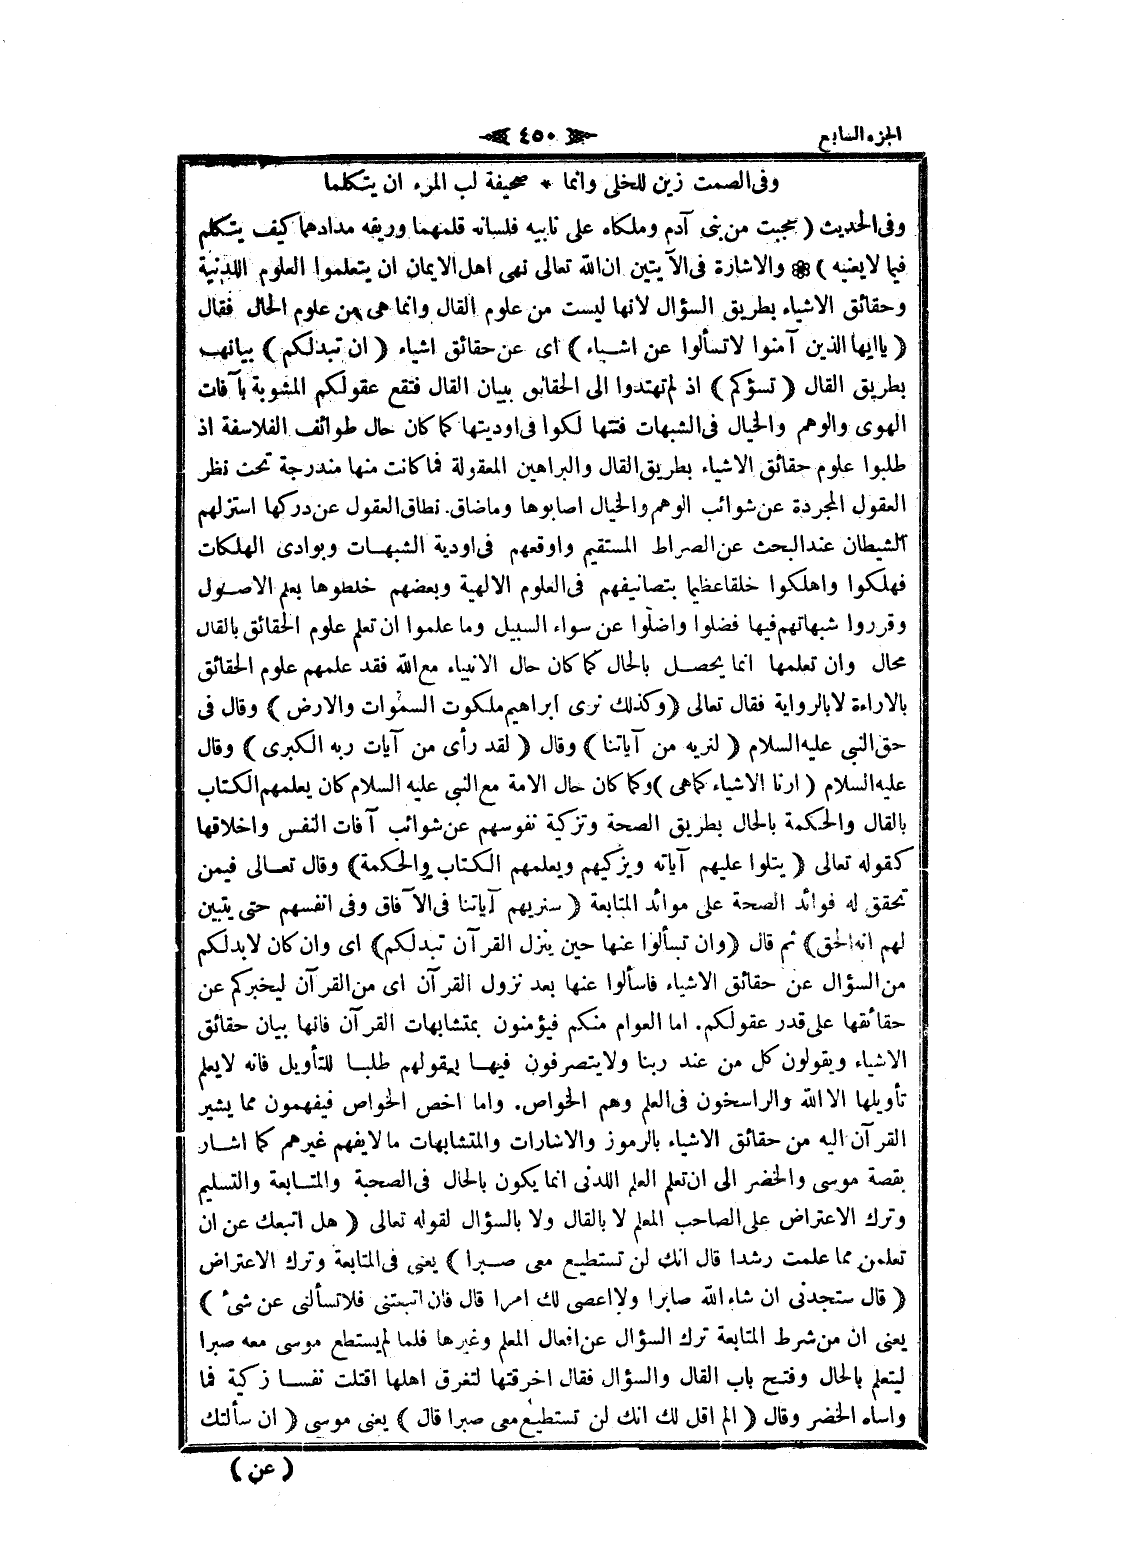 الجزء السابع
٤٥٠
وفى الصمت زين للخلى وانما * صحيفة لب المرء ان يتكلما
وفى الحديث ( عجبت من بنى آدم وملكاه على نابيه فلسانه قلمهما وريقه مدادهما كيف يتكلم
فيما لا يعنيه ) والاشارة فى الآيتين ان الله تعالى نهى اهل الايمان ان يتعلموا العلوم اللدنية
وحقائق الاشياء بطريق السؤال لانها ليست من علوم القال وانما هى من علوم الحال فقال
( ياايها الذين آمنوا لا تسألوا عن اشياء ) اى عن حقائق اشياء ( ان تبدلكم ) بيانها
بطريق القال ( تسؤكم ) اذ لم تهتدوا الى الحقائق ببيان القال فتقع عقولكم المشوبة بآفات
الهوى والوهم والخيال فى الشبهات فتتها لكوا فى اوديتها كما كان حال طوائف الفلاسفة اذ
طلبوا علوم حقائق الاشياء بطريق القال والبراهين المعقولة فما كانت منها مندرجة تحت نظر
العقول المجردة عن شوائب الوهم والخيال اصابوها وماضاق نطاق العقول عن دركها استزلهم
الشيطان عند البحث عن الصراط المستقيم واوقعهم فى اودية الشبهات وبوادى الهلكات
فهلكوا واهلكوا خلقا عظيما بتصانيفهم فى العلوم الالهية وبعضهم خلطوها بعلم الاصول
وقرروا شبهاتهم فيها فضلوا واضلوا عن سواء السبيل وما علموا ان تعلم علوم الحقائق بالقال
محال وان تعلمها انما يحصل بالحال كما كان حال الانبياء مع الله فقد علمهم علوم الحقائق
بالاراءة لا بالرواية فقال تعالى ( وكذلك نرى ابراهيم ملكوت السموات والارض ) وقال فى
حق النبى عليه السلام ( لنريه من آياتنا ) وقال ( لقد رأى من آيات ربه الكبرى ) وقال
عليه السلام ( ارنا الاشياء كماهى ) وكما كان حال الامة مع النبى عليه السلام كان يعلمهم الكتاب
بالقال والحكمة بالحال بطريق الصحة وتزكية نفوسهم عن شوائب آفات النفس واخلاقها
كقوله تعالى ( يتلوا عليهم آياته ويزكيهم ويعلمهم الكتاب والحكمة ) وقال تعالى فيمن
تحقق له فوائد الصحة على موائد المتابعة ( سنريهم آياتنا فى الآفاق وفى انفسهم حتى يتبين
لهم انه الحق ) ثم قال ( وان تسألوا عنها حين ينزل القرآن تبدلكم ) اى وان كان لابدلكم
من السؤال عن حقائق الاشياء فاسألوا عنها بعد نزول القرآن اى من القرآن ليخبركم عن
حقائقها على قدر عقولكم. اما العوام منكم فيؤمنون بمتشابهات القرآن فانها بيان حقائق
الاشياء ويقولون كل من عند ربنا ولا يتصرفون فيها بعقولهم طلبا للتأويل فانه لا يعلم
تأويلها الا الله والراسخون فى العلم وهم الخواص. واما اخص الخواص فيفهمون مما يشير
القرآن اليه من حقائق الاشياء بالرموز والاشارات والمتشابهات ما لا يفهم غيرهم كما اشار
بقصة موسى والخضر الى ان تعلم العلم اللدنى انما يكون بالحال فى الصحبة والمتابعة والتسليم
وترك الاعتراض على الصاحب المعلم لا بالقال ولا بالسؤال لقوله تعالى ( هل اتبعك عن ان
تعلمن مما علمت رشدا قال انك لن تستطيع معى صبرا ) يعنى فى المتابعة وترك الاعتراض
( قال ستجدنى ان شاء الله صابرا ولا اعصى لك امرا قال فان اتبعتنى فلا تسألنى عن شئ )
يعنى ان من شرط المتابعة ترك السؤال عن افعال المعلم وغيرها فلما لم يستطع موسى معه صبرا
ليتعلم بالحال وفتح باب القال والسؤال فقال اخرقتها لتغرق اهلها اقتلت نفسا زكية فما
واساه الخضر وقال ( الم اقل لك انك لن تستطيع معى صبرا قال ) يعنى موسى ( ان سألتك
( عن )